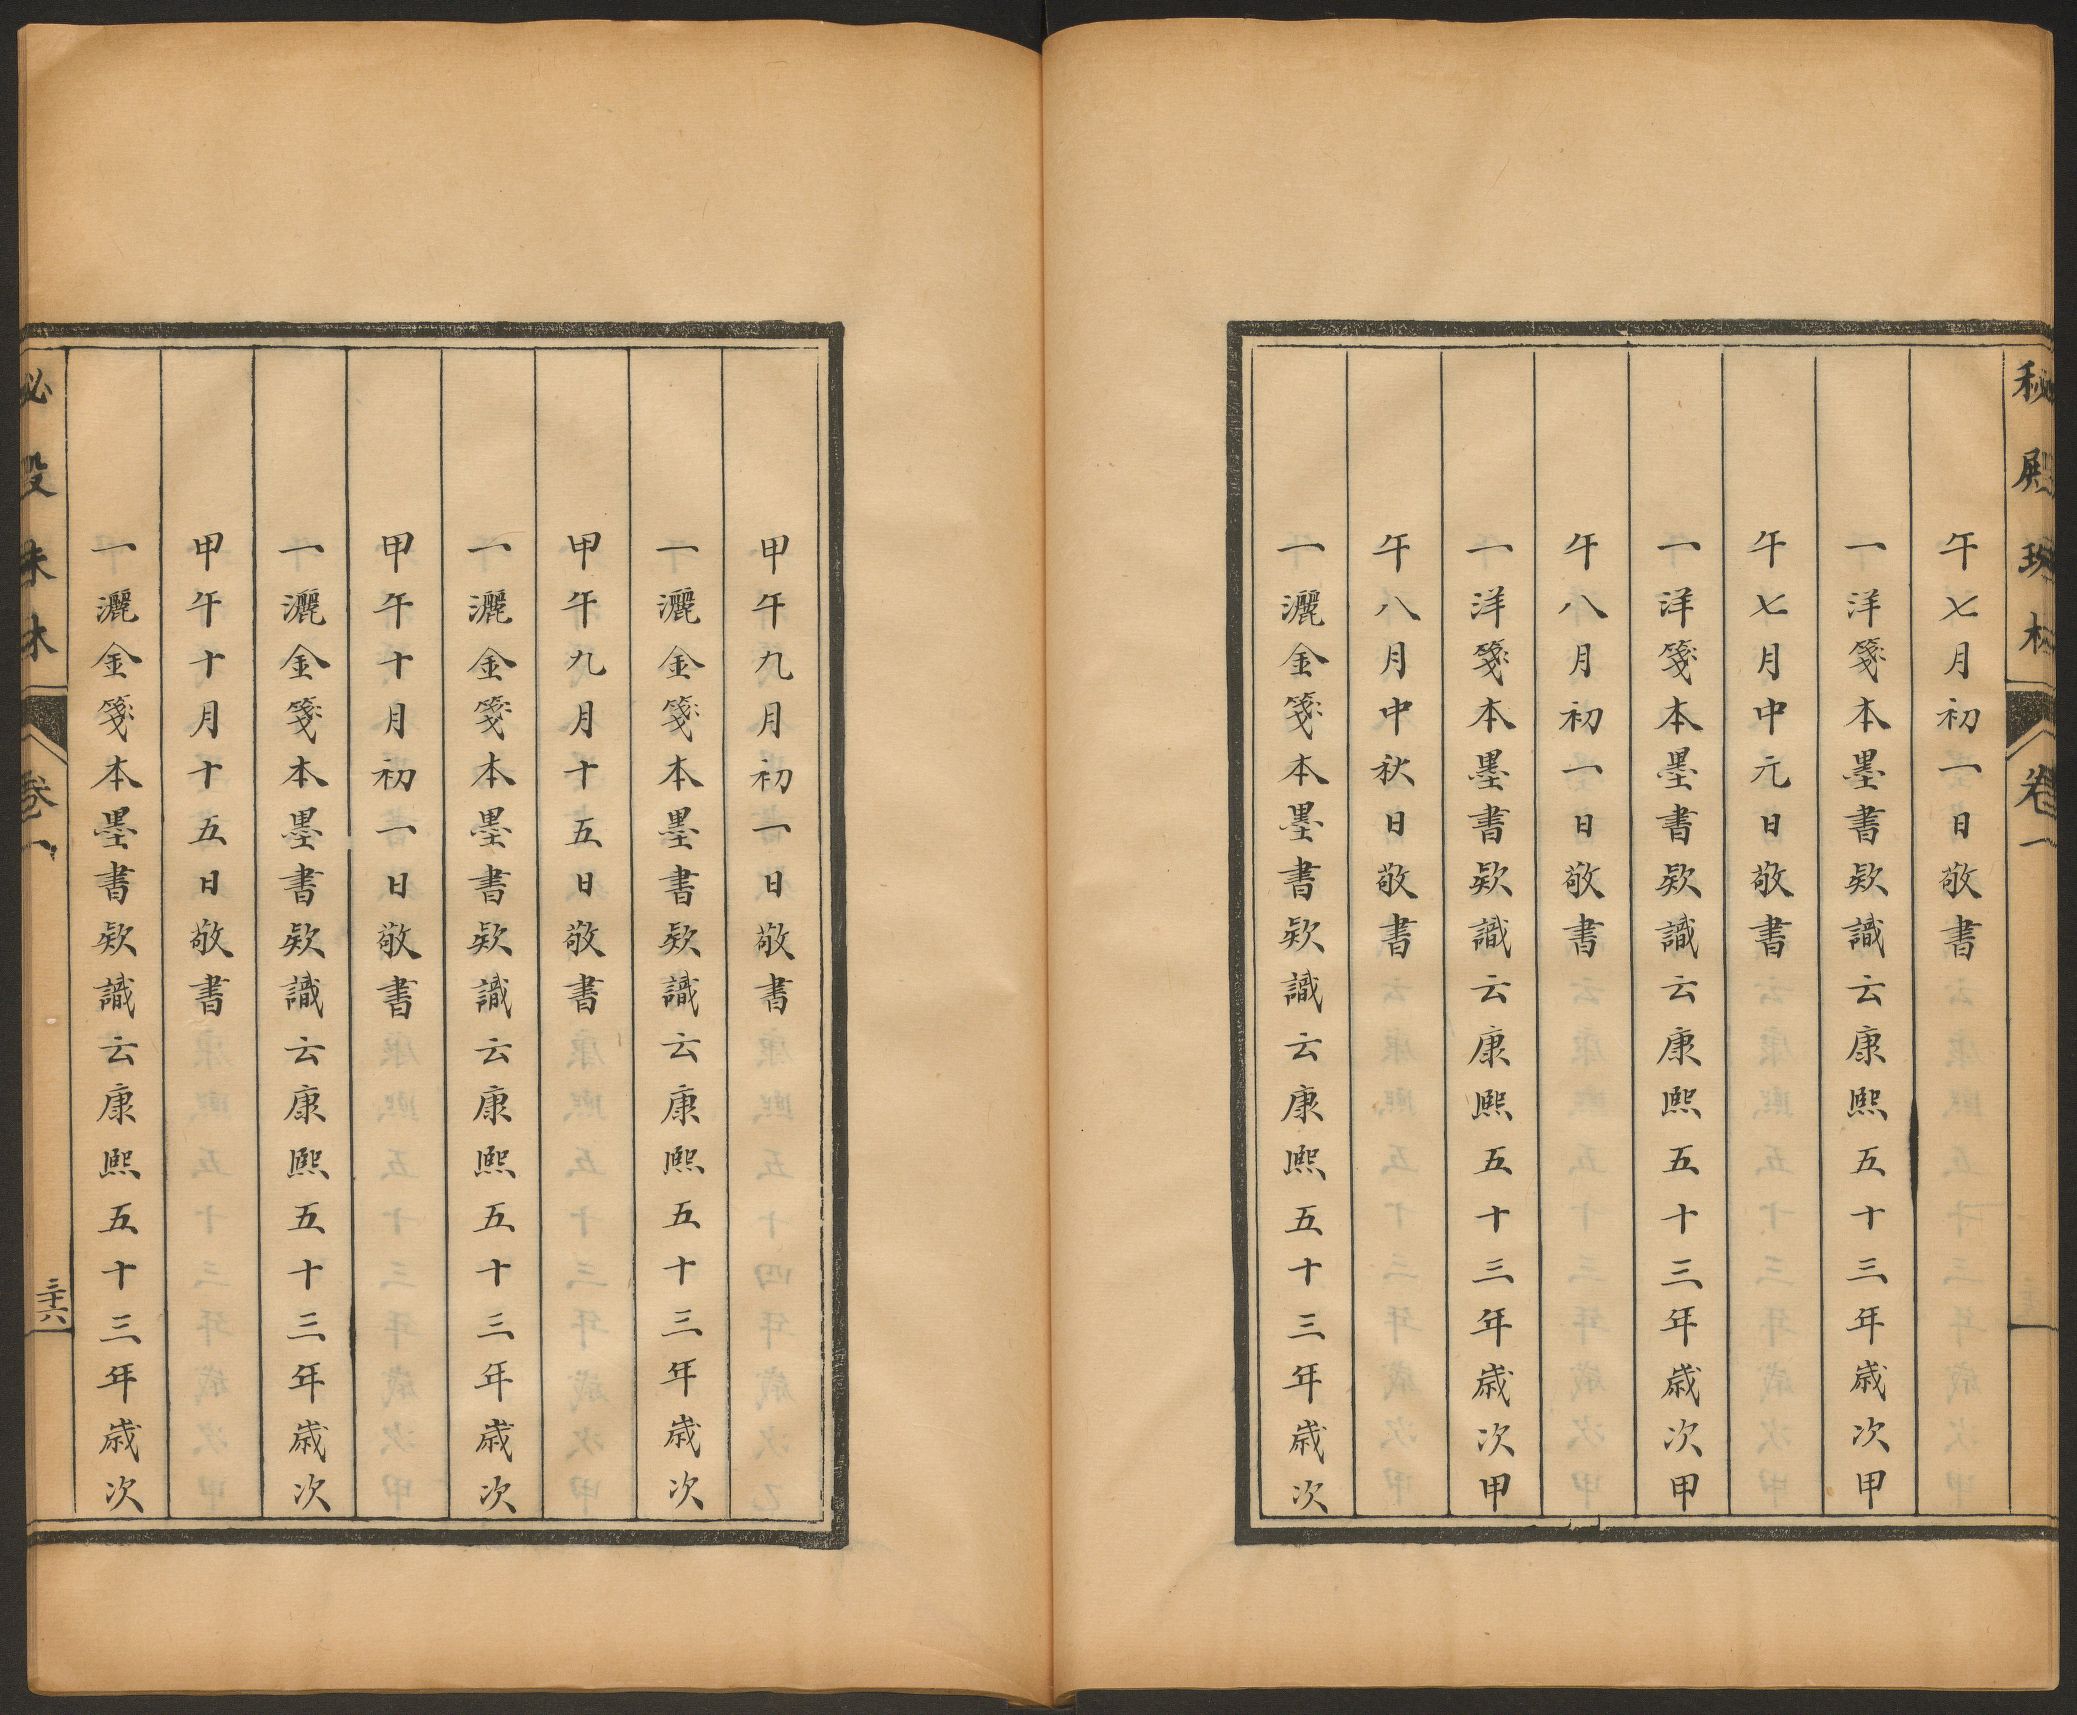 秘殿珠林
卷一
午七月初一日敬書
一洋箋本墨書欵識云康熙五十三年歲次甲
午七月中元日敬書
一洋箋本墨書欵識云康熙五十三年歲次甲
午八月初一日敬書
一洋箋本墨書欵識云康熙五十三年歲次甲
午八月中秋日敬書
一灑金箋本墨書欵識云康熙五十三年歲次
甲午九月初一日敬書
一灑金箋本墨書欵識云康熙五十三年歲次
甲午九月十五日敬書
一灑金箋本墨書欵識云康熙五十三年歲次
甲午十月初一日敬書
一灑金箋本墨書欵識云康熙五十三年歲次
甲午十月十五日敬書
一灑金箋本墨書欵識云康熙五十三年歲次
秘殿珠林
卷一
三十六